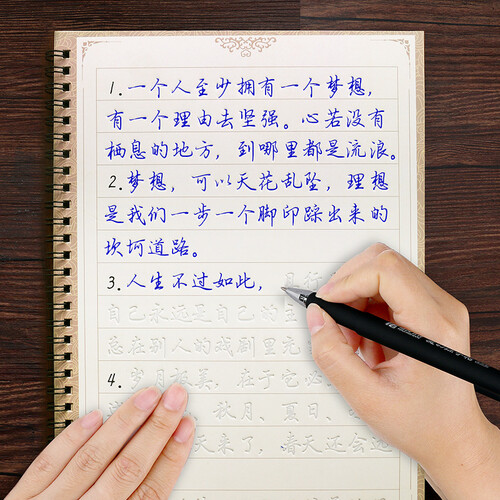 1.一个人至少拥有一个梦想，
有一个理由去坚强。心若没有
栖息的地方，到哪里都是流浪。
2.梦想，可以天花乱坠，理想
是我们一步一个脚印踩出来的
坎坷道路。
3.人生不过如此，且行
自己永远是自己的主
总在别人的戏剧里充
4.岁月极美，在于它必
秋月、夏日、
天来了，春天还会远